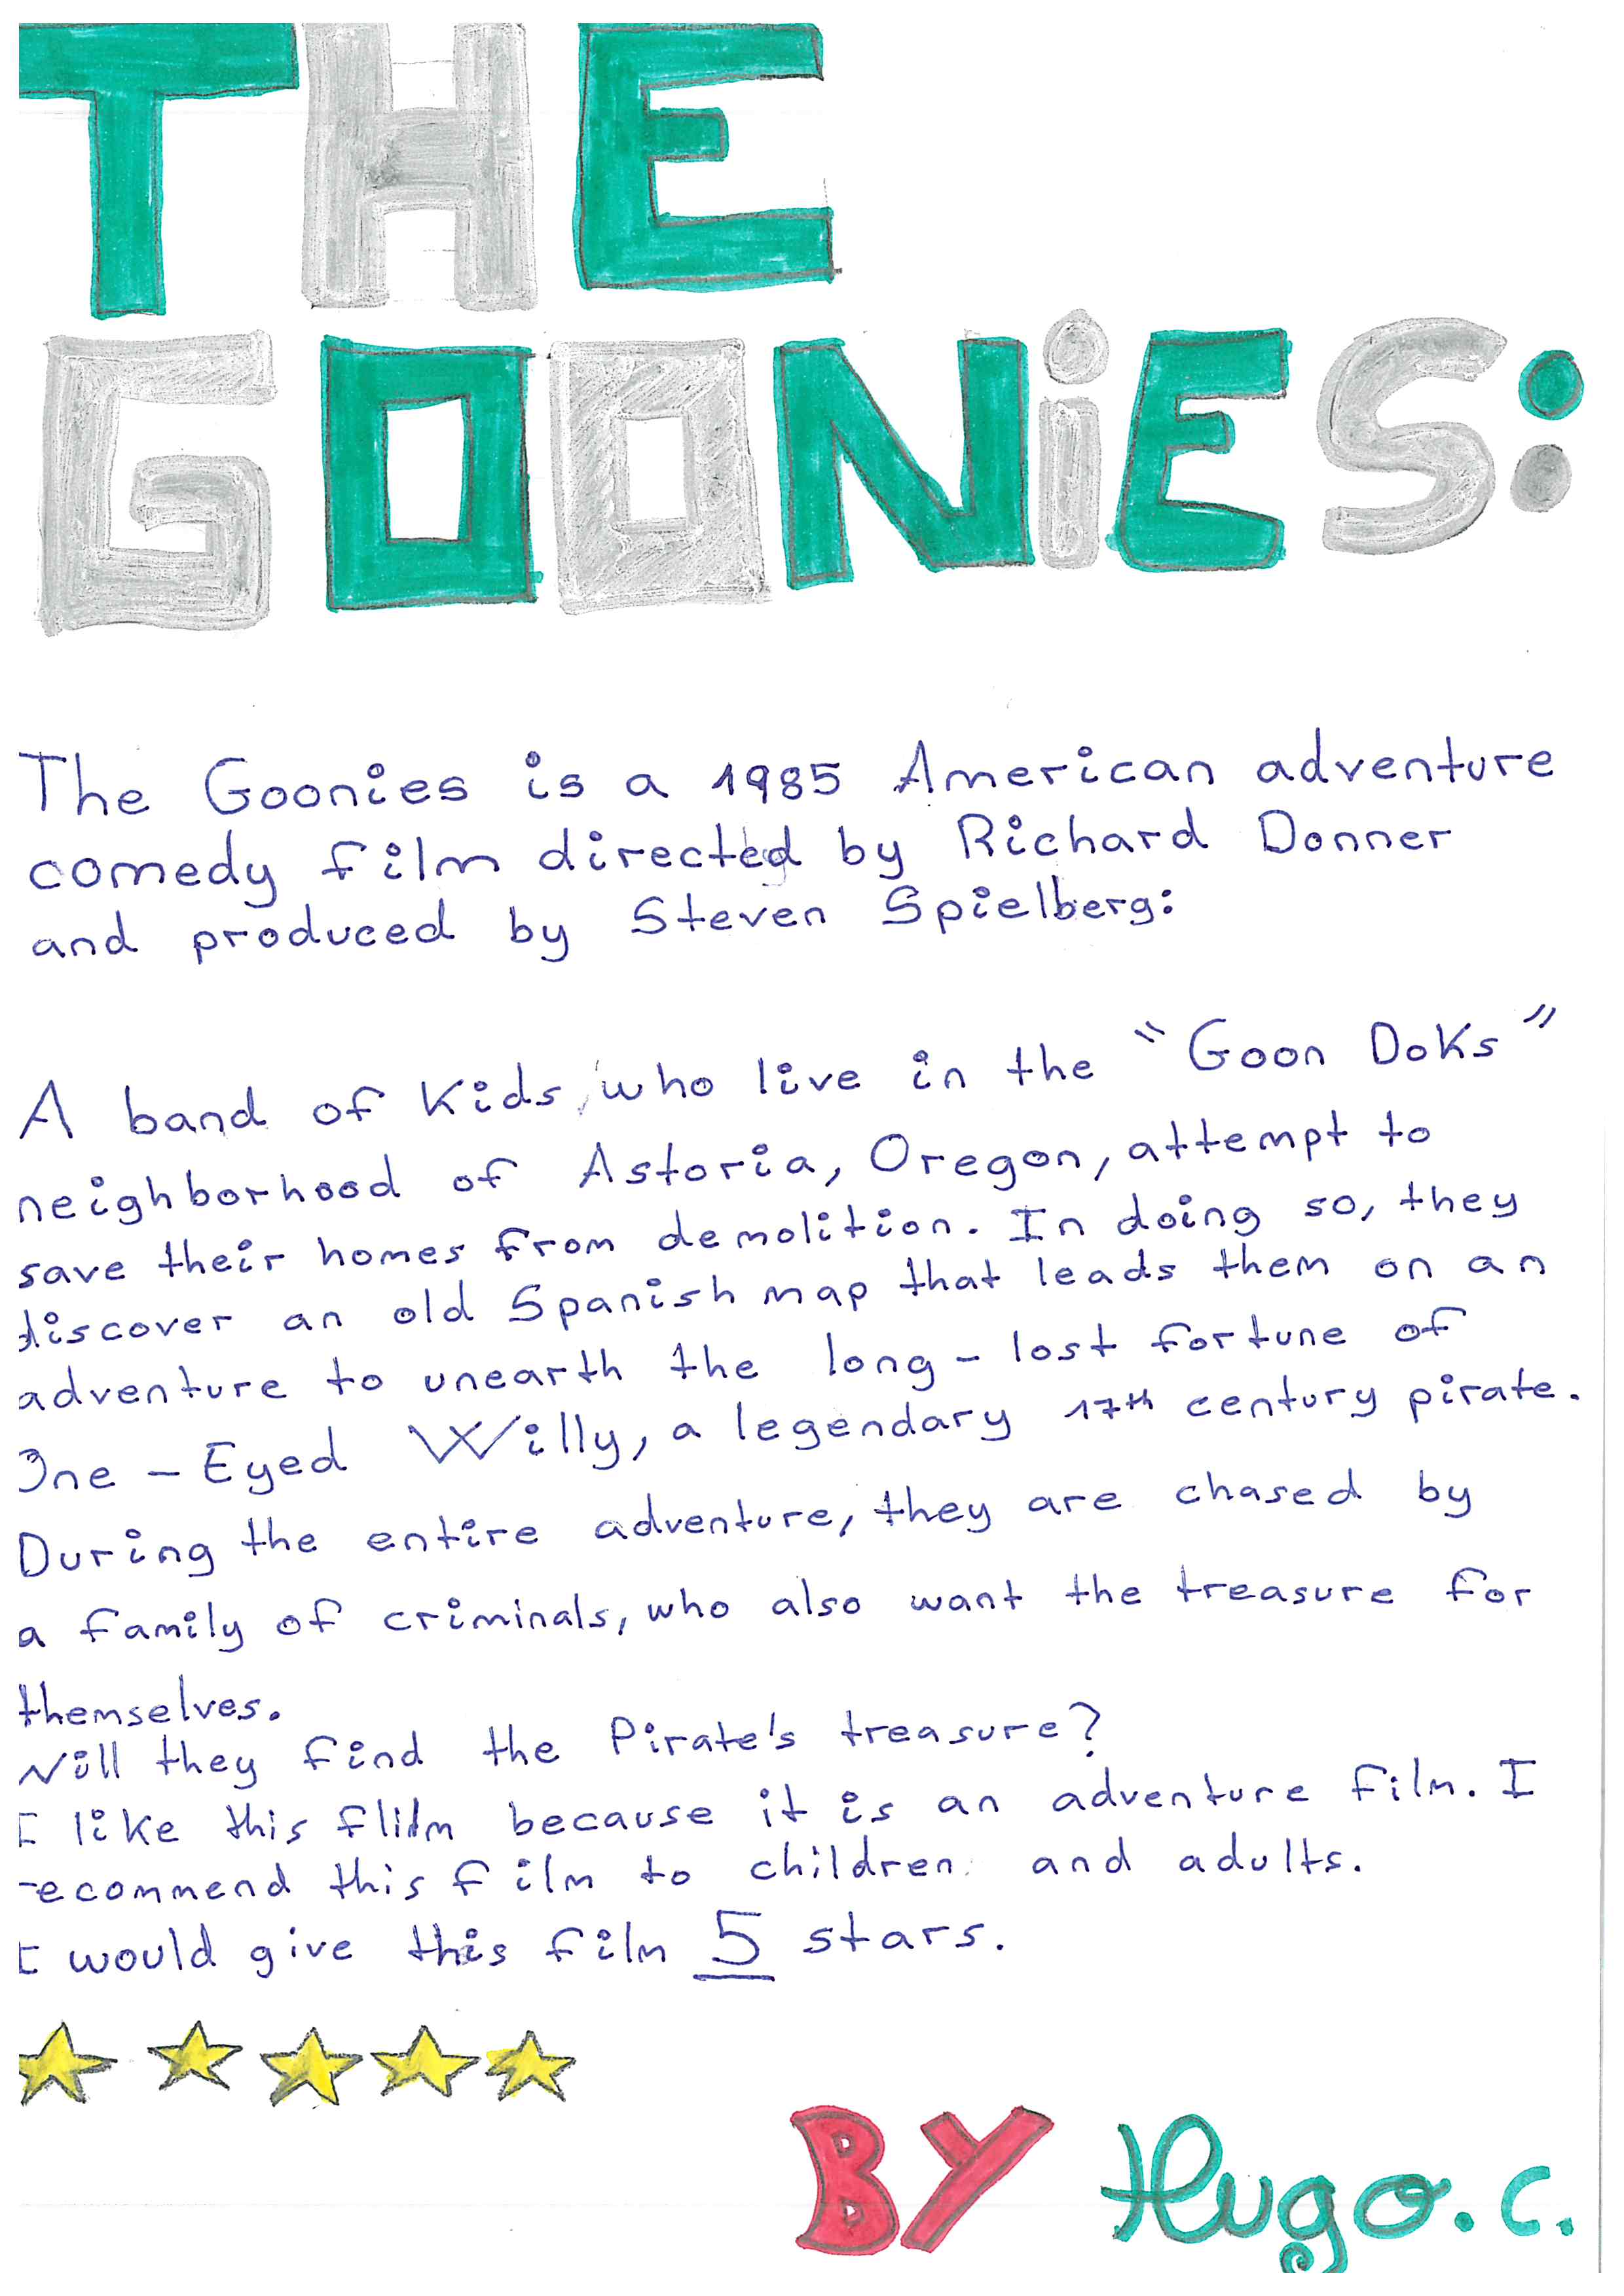 THE
GOONiES:
The Goonies is a 1985 American adventure
comedy film directed by Richard Donner
and produced by Steven Spielberg:
A band of Kids, who live in the "Goon Doks"
neighborhood of Astoria, Oregon, attempt to
save their homes from demolition. In doing so, they
discover an old Spanish map that leads them on an
adventure to unearth the long-lost fortune of
One-Eyed Willy, a legendary 17th century pirate.
During the entire adventure, they are chased by
a family of criminals, who also want the treasure for
themselves.
Will they find the Pirate's treasure?
I like this flilm because it is an adventure film. I
recommend this film to children and adults.
I would give this film 5 stars.
BY Hugo.C.